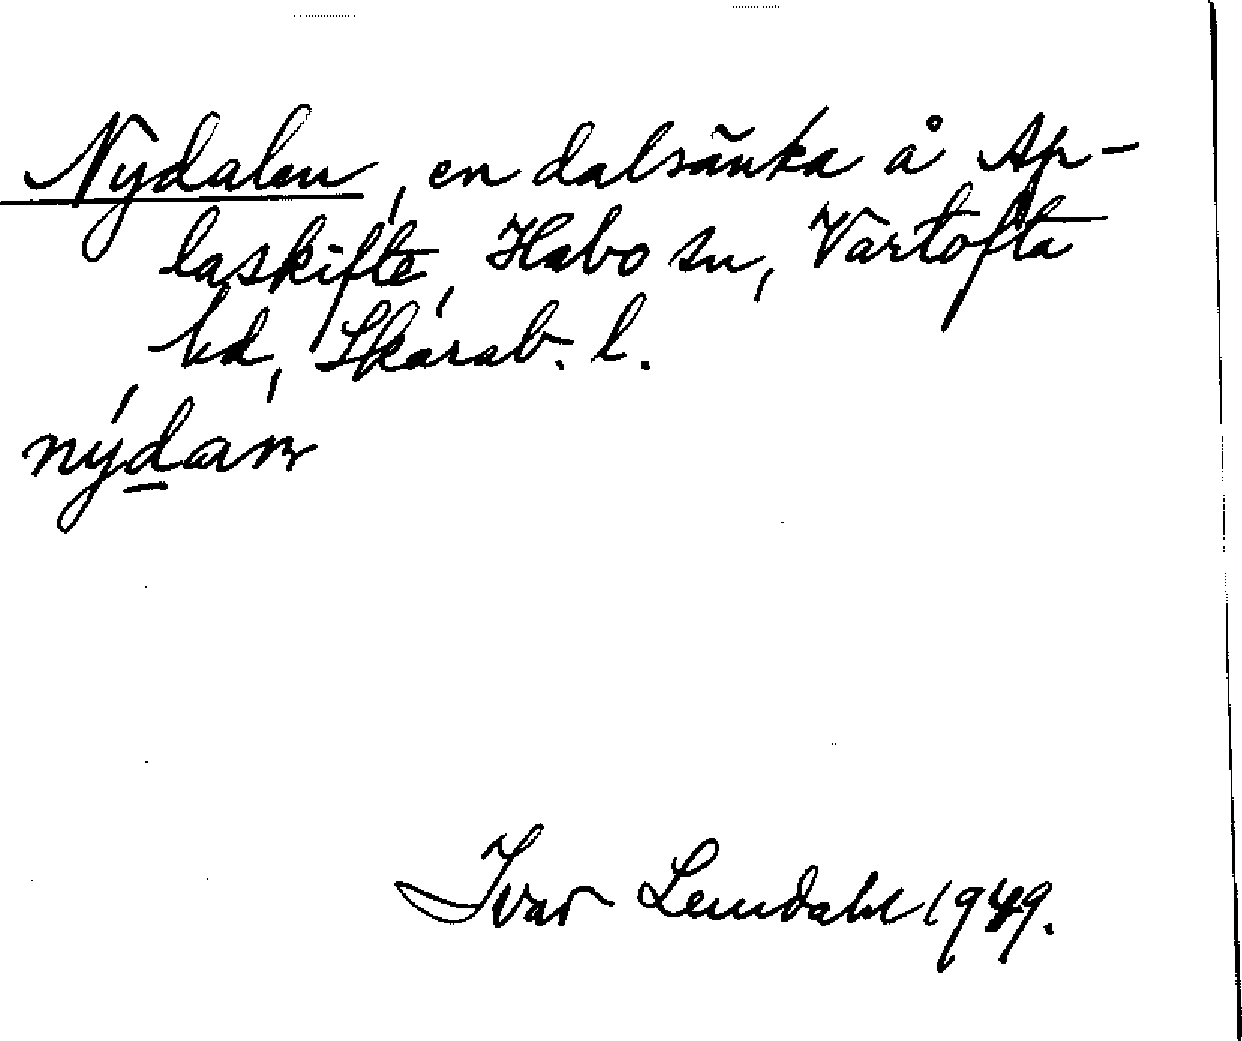 Nydalen, en dalsänka å Ap-
laskifte, Habo sn, Vartofta
hd, Skarab. l.
Ivar Lundahl 1949.